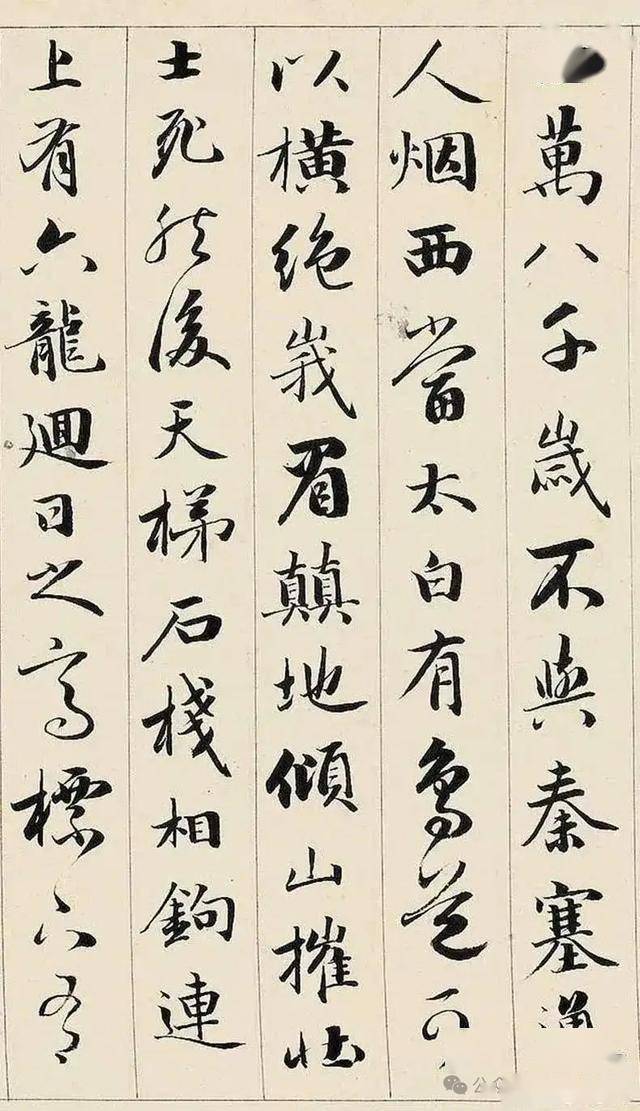 萬八千歲不與秦塞通
人烟西當太白有鳥道可
以橫絕峨眉顛地傾山摧壯
士死然後天梯石棧相鉤連
上有六龍廻日之高標下有